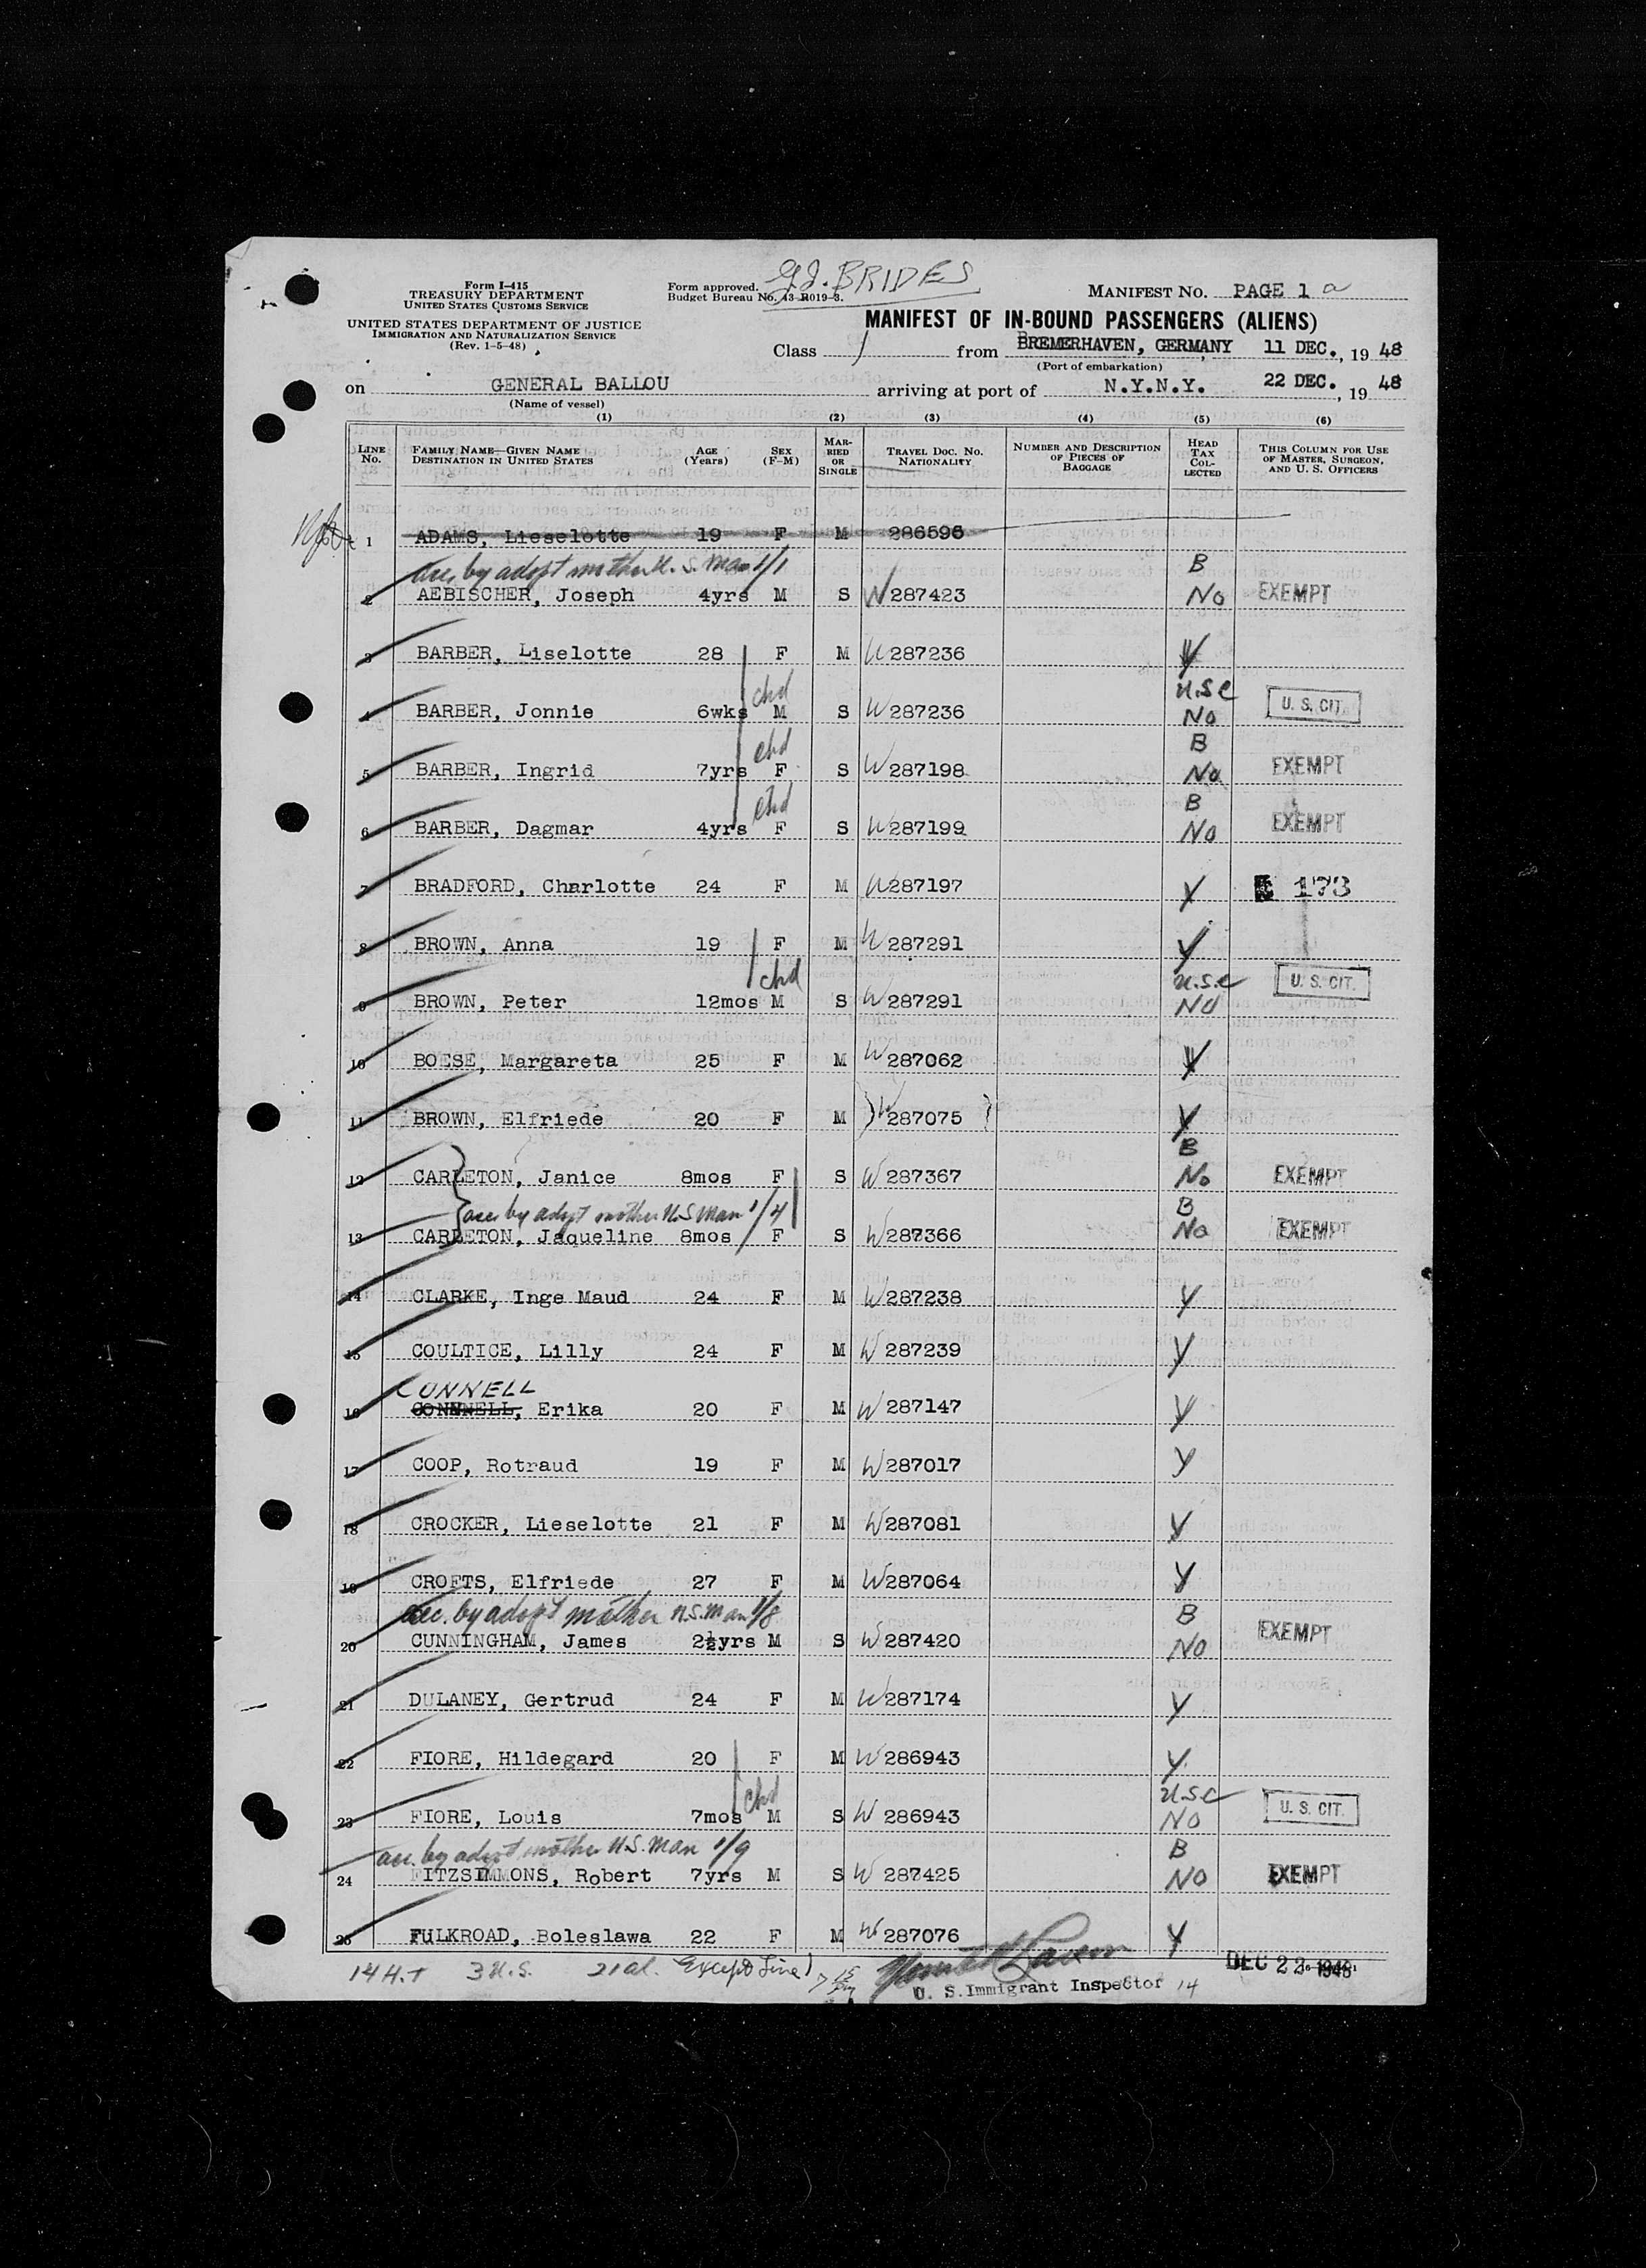 G.I. BRIDES
Form I-415
TREASURY DEPARTMENT
UNITED STATES CUSTOMS SERVICE
UNITED STATES DEPARTMENT OF JUSTICE
IMMIGRATION AND NATURALIZATION SERVICE
(Rev. 1-5-48)
Form approved.
Budget Bureau No. 43-R019-3.
MANIFEST NO. PAGE 1 a
MANIFEST OF IN-BOUND PASSENGERS (ALIENS)
Class / from BREMERHAVEN, GERMANY 11 DEC., 19 48
(Port of embarkation)
on GENERAL BALLOU arriving at port of N.Y.N.Y. 22 DEC., 19 48
(Name of vessel)
(1) (2) (3) (4) (5) (6)
LINE No. FAMILY NAME—GIVEN NAME DESTINATION IN UNITED STATES AGE (Years) SEX (F-M) MARRIED OR SINGLE TRAVEL DOC. NO. NATIONALITY NUMBER AND DESCRIPTION OF PIECES OF BAGGAGE HEAD TAX COLLECTED THIS COLUMN FOR USE OF MASTER, SURGEON, AND U. S. OFFICERS
1 ADAMS, Lieselotte 19 F M 286596
acc. by adopt mother U.S. Man 1/1 B
2 AEBISCHER, Joseph 4yrs M S W 287423 No EXEMPT
3 BARBER, Liselotte 28 F M W 287236 Y
chd U.S.C
4 BARBER, Jonnie 6wks M S W 287236 No U. S. CIT.
chd B
5 BARBER, Ingrid 7yrs F S W 287198 No EXEMPT
chd B
6 BARBER, Dagmar 4yrs F S W 287199 No EXEMPT
7 BRADFORD, Charlotte 24 F M W 287197 Y 173
8 BROWN, Anna 19 F M W 287291 Y
chd U.S.C
9 BROWN, Peter 12mos M S W 287291 NO U. S. CIT.
10 BOESE, Margareta 25 F M W 287062 Y
11 BROWN, Elfriede 20 F M W 287075 Y
B
12 CARLETON, Janice 8mos F S W 287367 No EXEMPT
acc. by adopt mother U.S Man 1/4 B
13 CARLETON, Jaqueline 8mos F S W 287366 No EXEMPT
14 CLARKE, Inge Maud 24 F M W 287238 Y
15 COULTICE, Lilly 24 F M W 287239 Y
CONNELL
16 CONNNELL, Erika 20 F M W 287147 Y
17 COOP, Rotraud 19 F M W 287017 Y
18 CROCKER, Lieselotte 21 F M W 287081 Y
19 CROFTS, Elfriede 27 F M W 287064 Y
acc. by adopt mother U.S. Man 1/8 B
20 CUNNINGHAM, James 2½yrs M S W 287420 NO EXEMPT
21 DULANEY, Gertrud 24 F M W 287174 Y
22 FIORE, Hildegard 20 F M W 286943 Y
chd U.S.C
23 FIORE, Louis 7mos M S W 286943 NO U. S. CIT.
acc. by adopt mother U.S. Man 1/9 B
24 FITZSIMMONS, Robert 7yrs M S W 287425 NO EXEMPT
25 FULKROAD, Boleslawa 22 F M W 287076 Y
14 H.T 3 U.S. 21 al. Except Line 1 DEC 22 1948
U. S. Immigrant Inspector 14